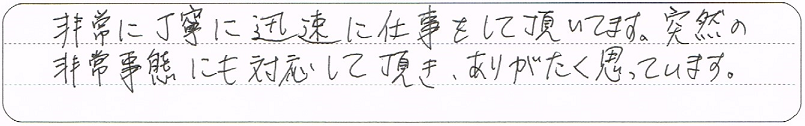 非常に丁寧に迅速に仕事をして頂いてます。突然の
非常事態にも対応して頂き、ありがたく思っています。